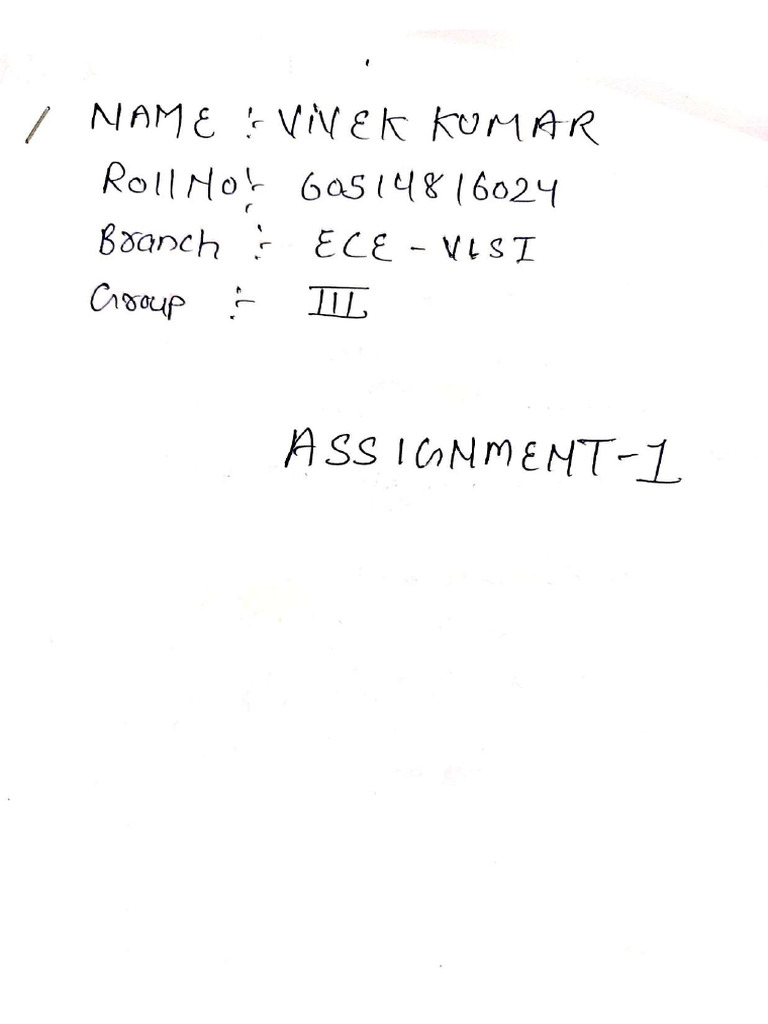 NAME :- VIVEK KUMAR
Roll No :- 60514816024
Branch :- ECE - VLSI
Group :- III
ASSIGNMENT-1